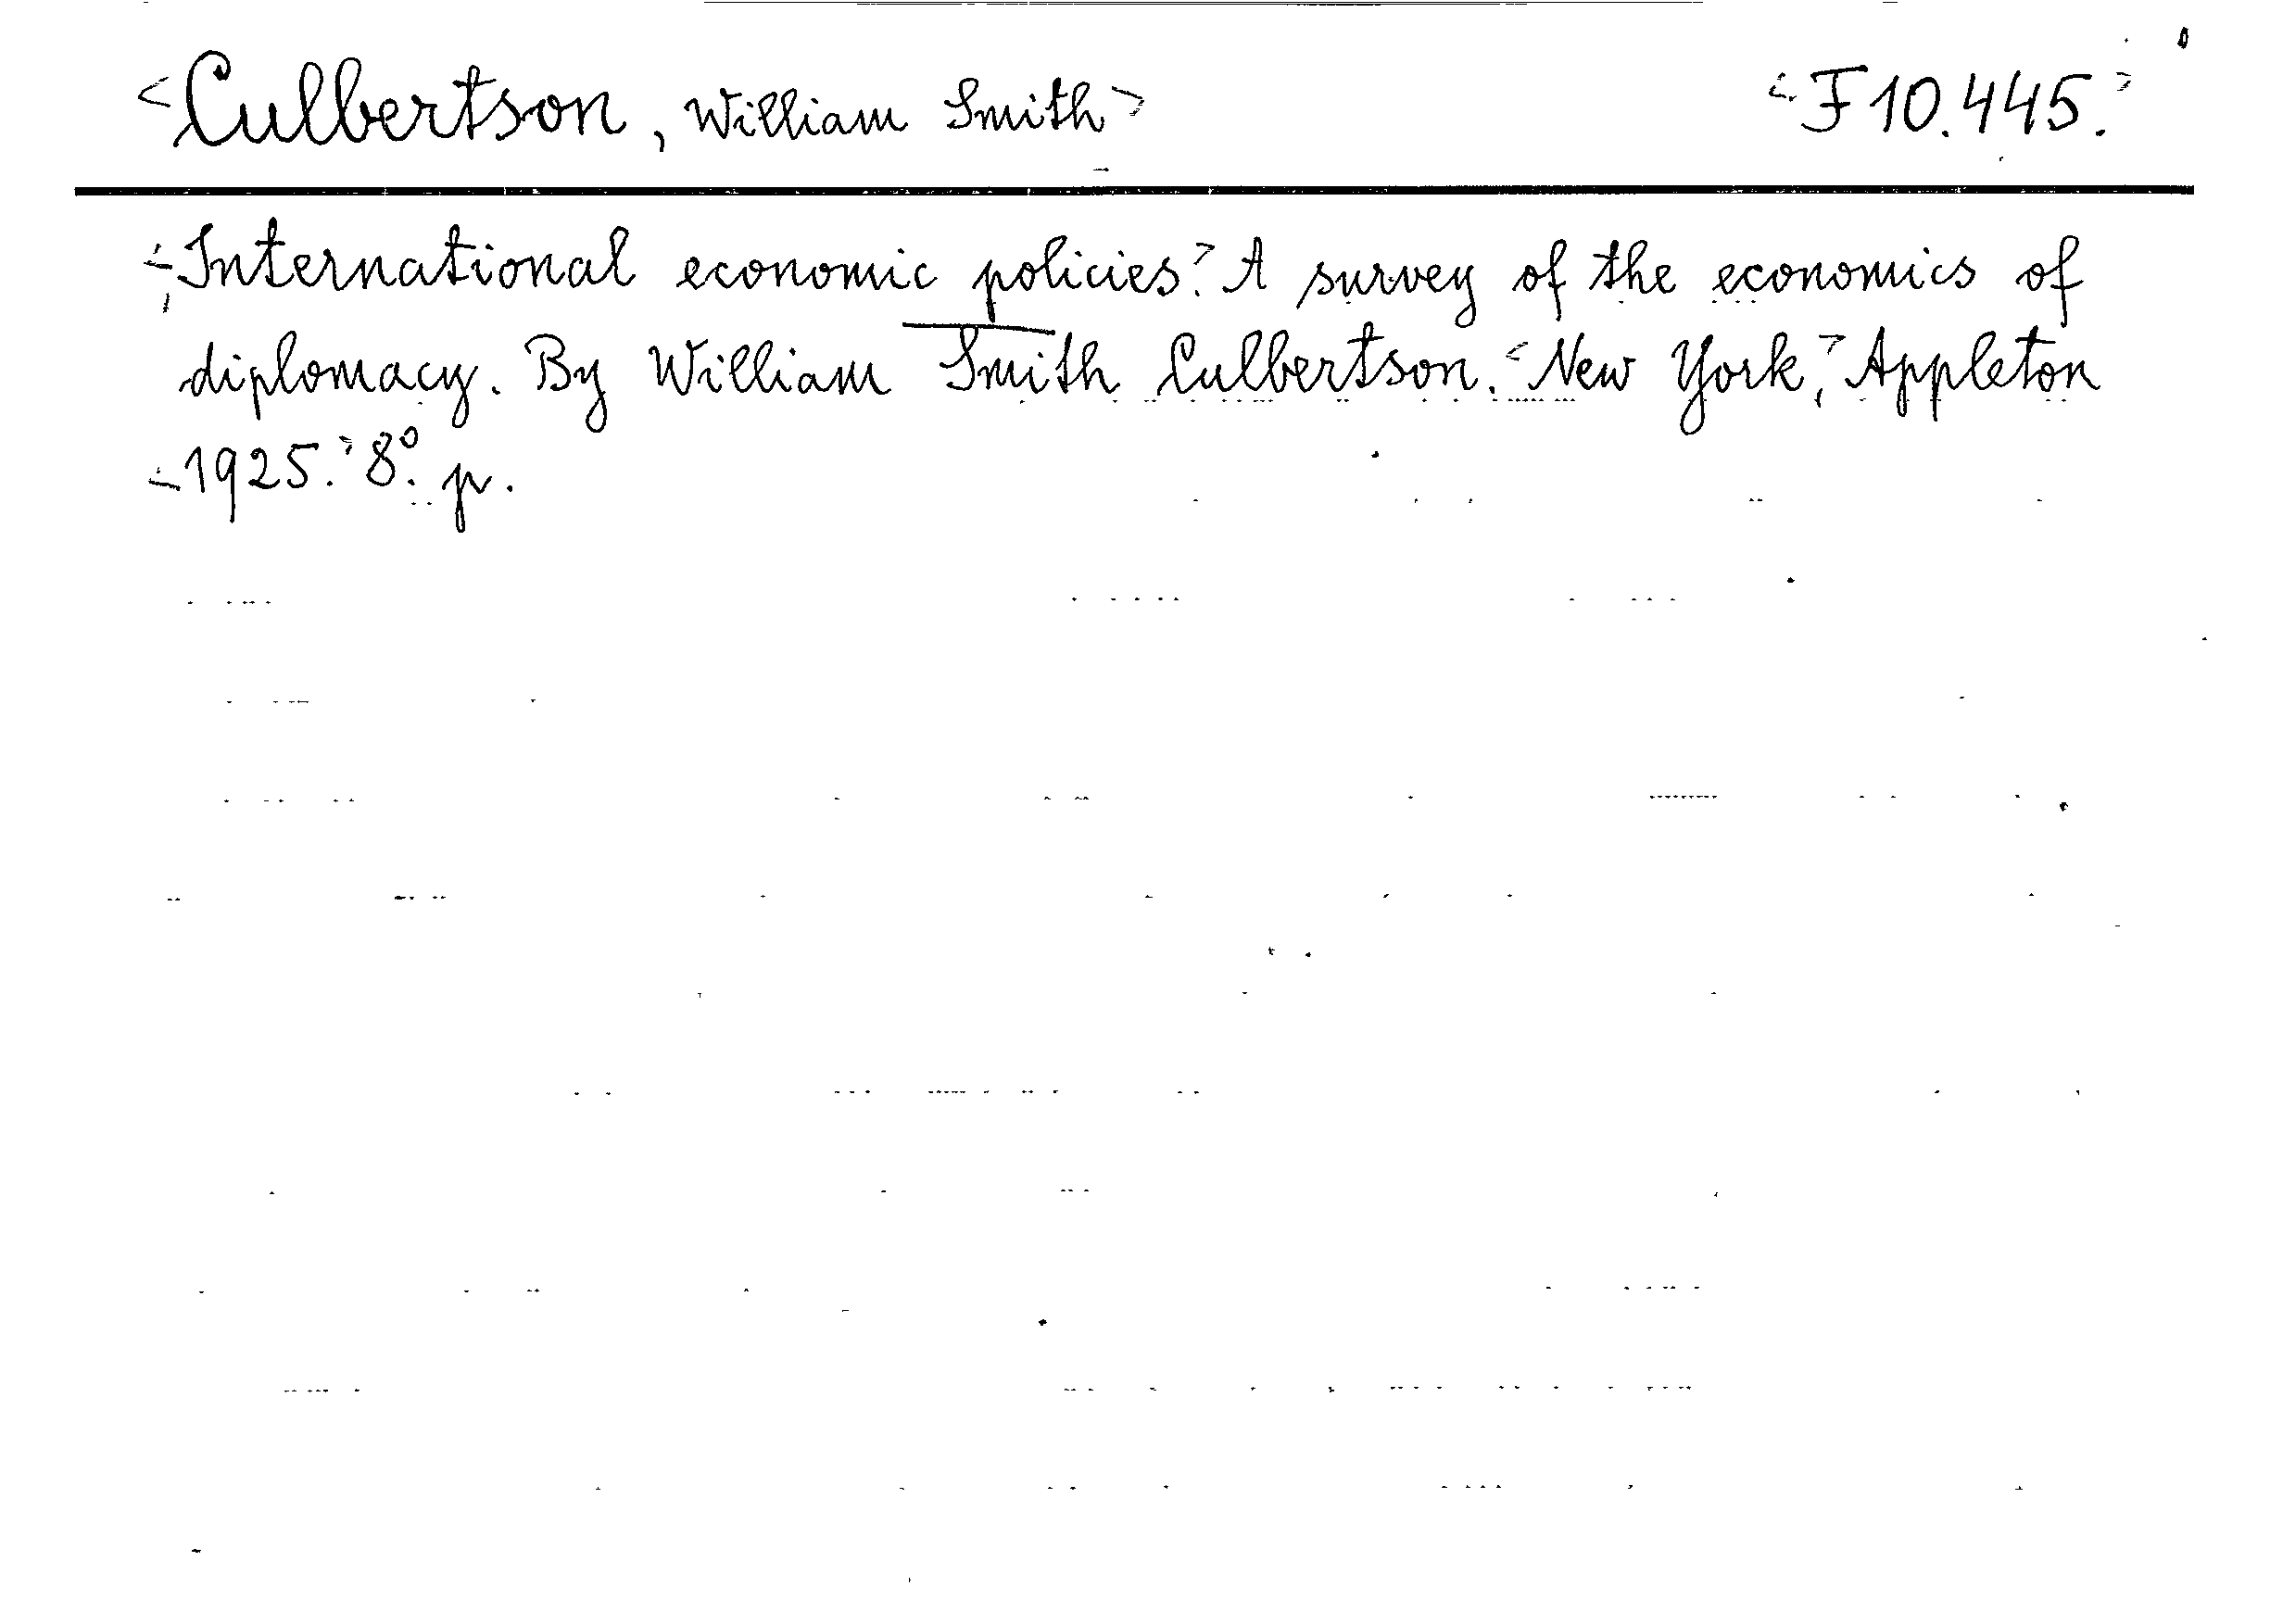 <Culbertson, William Smith> <F 10.445.>
<International economic policies.> A survey of the economics of
diplomacy. By William Smith Culbertson. <New York,> Appleton
<1925.> 8º. p.